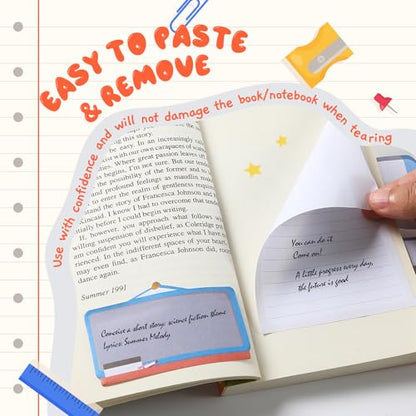 EASY TO PASTE
& REMOVE
Use with confidence and will not damage the book/notebook when tearing
ing this story.
be easy. In an increasingly
with our own carapaces of
Where great passion leaves
begins, I'm not sure. But our
the possibility of the former and to
and profound feelings as maudlin
to enter the realm of gentleness
stand the story of Francesca Johnson and
Kincaid. I know I had to overcome that
tially before I could begin writing.
If, however, you approach what follows
willing suspension of disbelief, as Coleridge
am confident you will experience what I have
rienced. In the indifferent spaces of your
may even find, as Francesca Johnson did,
dance again.
Summer 1991
Concive a short story: science fiction theme
Lyrics: Summer Melody
You can do it
Come on!
A little progress every day,
the future is good